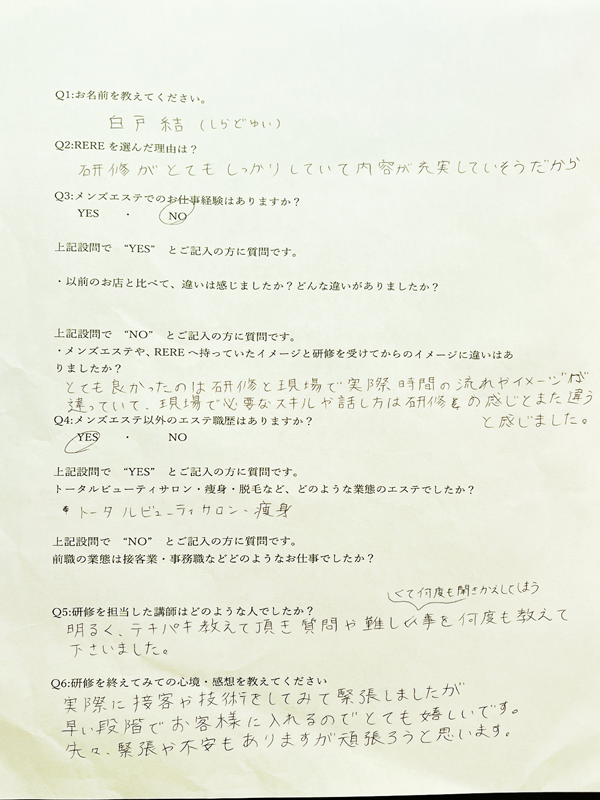 Q1:お名前を教えてください。
白戸 結 (しらどゆい)
Q2:RERE を選んだ理由は？
研修がとてもしっかりしていて内容が充実していそうだから
Q3:メンズエステでのお仕事経験はありますか？
YES ・ NO
上記設問で “YES” とご記入の方に質問です。
・以前のお店と比べて、違いは感じましたか？どんな違いがありましたか？
上記設問で “NO” とご記入の方に質問です。
・メンズエステや、RERE へ持っていたイメージと研修を受けてからのイメージに違いはあ
りましたか？
とても良かったのは研修と現場で実際時間の流れやイメージが
違っていて、現場で必要なスキルや話し方は研修の感じとまた違う
と感じました。
Q4:メンズエステ以外のエステ職歴はありますか？
YES ・ NO
上記設問で “YES” とご記入の方に質問です。
トータルビューティサロン・痩身・脱毛など、どのような業態のエステでしたか？
トータルビューティサロン・痩身
上記設問で “NO” とご記入の方に質問です。
前職の業態は接客業・事務職などどのようなお仕事でしたか？
くて何度も聞きかえしてしまう
Q5:研修を担当した講師はどのような人でしたか？
明るく、テキパキ教えて頂き質問や難しい事を何度も教えて
下さいました。
Q6:研修を終えてみての心境・感想を教えてください
実際に接客や技術をしてみて緊張しましたが
早い段階でお客様に入れるのでとても嬉しいです。
先々、緊張や不安もありますが頑張ろうと思います。